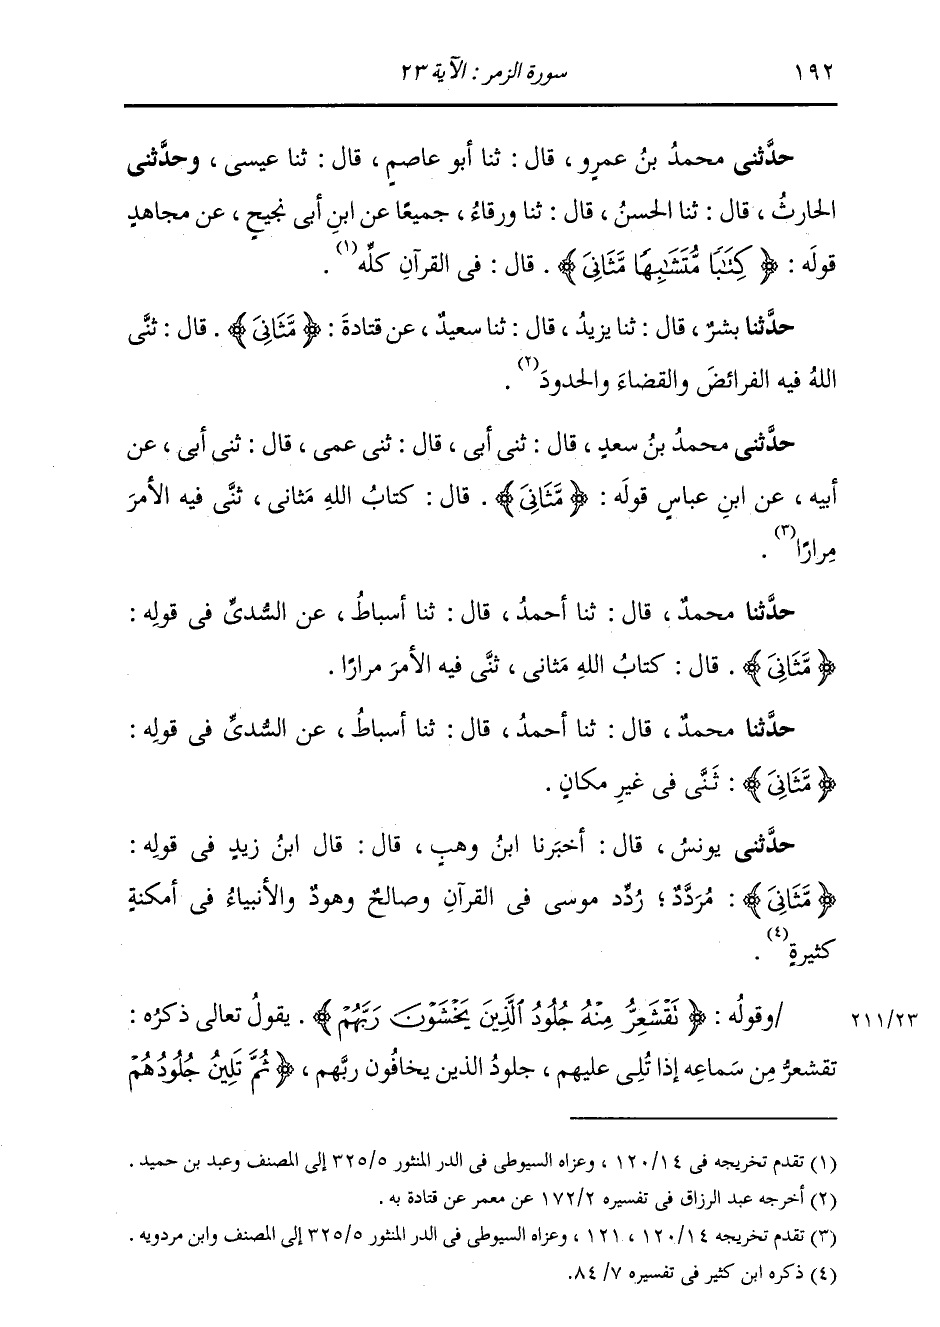 ١٩٢ سورة الزمر : الآية ٢٣
حدَّثنى محمدُ بنُ عمرٍو ، قال : ثنا أبو عاصمٍ ، قال : ثنا عيسى ، وحدَّثنى
الحارثُ ، قال : ثنا الحسنُ ، قال : ثنا ورقاءُ ، جميعًا عن ابنِ أبى نجيحٍ ، عن مجاهدٍ
قولَه : ﴿ كِتَٰبًا مُّتَشَٰبِهًا مَّثَانِىَ ﴾ . قال : فى القرآنِ كلِّه(١) .
حدَّثنا بشرٌ ، قال : ثنا يزيدُ ، قال : ثنا سعيدٌ ، عن قتادةَ : ﴿ مَّثَانِىَ ﴾ . قال : ثنَّى
اللهُ فيه الفرائضَ والقضاءَ والحدودَ(٢) .
حدَّثنى محمدُ بنُ سعدٍ ، قال : ثنى أبى ، قال : ثنى عمى ، قال : ثنى أبى ، عن
أبيه ، عن ابنِ عباسٍ قولَه : ﴿ مَّثَانِىَ ﴾ . قال : كتابُ اللهِ مَثانى ، ثنَّى فيه الأمرَ
مِرارًا(٣) .
حدَّثنا محمدٌ ، قال : ثنا أحمدُ ، قال : ثنا أسباطُ ، عن السُّدىِّ فى قولِه :
﴿ مَّثَانِىَ ﴾ . قال : كتابُ اللهِ مَثانى ، ثنَّى فيه الأمرَ مرارًا .
حدَّثنا محمدٌ ، قال : ثنا أحمدُ ، قال : ثنا أسباطُ ، عن السُّدىِّ فى قولِه :
﴿ مَّثَانِىَ ﴾ : ثَنَّى فى غيرِ مكانٍ .
حدَّثنى يونسُ ، قال : أخبَرنا ابنُ وهبٍ ، قال : قال ابنُ زيدٍ فى قولِه :
﴿ مَّثَانِىَ ﴾ : مُرَدَّدٌ ؛ رُدِّد موسى فى القرآنِ وصالحٌ وهودٌ والأنبياءُ فى أمكنةٍ
كثيرةٍ(٤) .
/وقولُه : ﴿ نَقْشَعِرُّ مِنْهُ جُلُودُ ٱلَّذِينَ يَخْشَوْنَ رَبَّهُمْ ﴾ . يقولُ تعالى ذكرُه : ٢١١/٢٣
تقشعرُّ مِن سَماعِه إذا تُلِى عليهم ، جلودُ الذين يخافُون ربَّهم ، ﴿ ثُمَّ تَلِينُ جُلُودُهُمْ
(١) تقدم تخريجه فى ١٢٠/١٤ ، وعزاه السيوطى فى الدر المنثور ٣٢٥/٥ إلى المصنف وعبد بن حميد .
(٢) أخرجه عبد الرزاق فى تفسيره ١٧٢/٢ عن معمر عن قتادة به .
(٣) تقدم تخريجه ١٢٠/١٤ ، ١٢١ ، وعزاه السيوطى فى الدر المنثور ٣٢٥/٥ إلى المصنف وابن مردويه .
(٤) ذكره ابن كثير فى تفسيره ٧/ ٨٤.